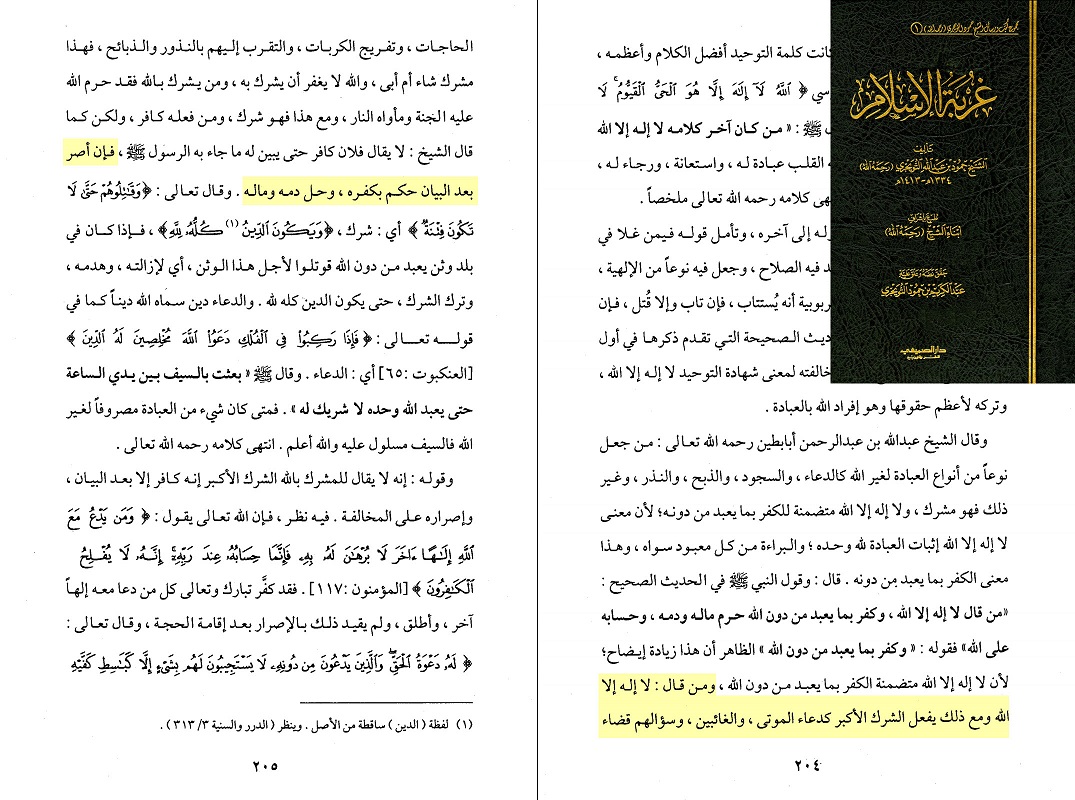 كانت كلمة التوحيد أفضل الكلام وأعظمه ،
سي ﴿ ٱللَّهُ لَآ إِلَٰهَ إِلَّا هُوَ ٱلْحَىُّ ٱلْقَيُّومُ ۚ لَا
ﷺ : « من كان آخر كلامه لا إله إلا الله
ه القلب عبادة له ، واستعانة ، ورجاء له ،
تهى كلامه رحمه الله تعالى ملخصاً .
وله إلى آخره ، وتأمل قوله فيمن غلا في
د فيه الصلاح ، وجعل فيه نوعاً من الإلهية ،
ربوبية أنه يُستتاب ، فإن تاب وإلا قُتل ، فإن
ديث الصحيحة التي تقدم ذكرها في أول
خالفته لمعنى شهادة التوحيد لا إله إلا الله ،
وتركه لأعظم حقوقها وهو إفراد الله بالعبادة .
وقال الشيخ عبدالله بن عبدالرحمن أبابطين رحمه الله تعالى : من جعل
نوعاً من أنواع العبادة لغير الله كالدعاء ، والسجود ، والذبح ، والنذر ، وغير
ذلك فهو مشرك ، ولا إله إلا الله متضمنة للكفر بما يعبد من دونه؛ لأن معنى
لا إله إلا الله إثبات العبادة لله وحده ؛ والبراءة من كل معبود سواه ، وهذا
معنى الكفر بما يعبد من دونه . قال : وقول النبي ﷺ في الحديث الصحيح :
«من قال لا إله إلا الله ، وكفر بما يعبد من دون الله حرم ماله ودمه ، وحسابه
على الله» فقوله : « وكفر بما يعبد من دون الله » الظاهر أن هذا زيادة إيضاح؛
لأن لا إله إلا الله متضمنة الكفر بما يعبد من دون الله ، ومن قال : لا إله إلا
الله ومع ذلك يفعل الشرك الأكبر كدعاء الموتى ، والغائبين ، وسؤالهم قضاء
٢٠٤
غربة الإسلام
تأليف
الشيخ حمود بن عبدالله التويجري (رحمه الله)
١٣٣٤هـ - ١٤١٣هـ
طبع بإشراف
أبناء الشيخ (رحمه الله)
حقق نصه وعلق عليه
عبدالكريم بن حمود التويجري
دار الصميعي
الحاجات ، وتفريج الكربات ، والتقرب إليهم بالنذور والذبائح ، فهذا
مشرك شاء أم أبى ، والله لا يغفر أن يشرك به ، ومن يشرك بالله فقد حرم الله
عليه الجنة ومأواه النار ، ومع هذا فهو شرك ، ومن فعله كافر ، ولكن كما
قال الشيخ : لا يقال فلان كافر حتى يبين له ما جاء به الرسول ﷺ ، فإن أصر
بعد البيان حكم بكفره ، وحل دمه وماله . وقال تعالى : ﴿وَقَٰتِلُوهُمْ حَتَّىٰ لَا
تَكُونَ فِتْنَةٌ ﴾ أي : شرك ، ﴿وَيَكُونَ ٱلدِّينُ (١) كُلُّهُۥ لِلَّهِ﴾ ، فإذا كان في
بلد وثن يعبد من دون الله قوتلوا لأجل هذا الوثن ، أي لإزالته ، وهدمه ،
وترك الشرك ، حتى يكون الدين كله لله . والدعاء دين سماه الله ديناً كما في
قولـه تعـالى : ﴿ فَإِذَا رَكِبُوا۟ فِى ٱلْفُلْكِ دَعَوُا۟ ٱللَّهَ مُخْلِصِينَ لَهُ ٱلدِّينَ ﴾
[العنكبوت :٦٥] أي : الدعاء . وقال ﷺ « بعثت بالسيف بين يدي الساعة
حتى يعبد الله وحده لا شريك له » . فمتى كان شيء من العبادة مصروفاً لغير
الله فالسيف مسلول عليه والله أعلم . انتهى كلامه رحمه الله تعالى .
وقوله : إنه لا يقال للمشرك بالله الشرك الأكبر إنه كافر إلا بعد البيان ،
وإصراره على المخالفة . فيه نظر ، فإن الله تعالى يقول : ﴿ وَمَن يَدْعُ مَعَ
ٱللَّهِ إِلَٰهًا ءَاخَرَ لَا بُرْهَٰنَ لَهُۥ بِهِۦ فَإِنَّمَا حِسَابُهُۥ عِندَ رَبِّهِۦٓ ۚ إِنَّهُۥ لَا يُفْلِحُ
ٱلْكَٰفِرُونَ ﴾ [المؤمنون :١١٧] . فقد كفَّر تبارك وتعالى كل من دعا معه إلهاً
آخر ، وأطلق ، ولم يقيد ذلك بـالإصرار بعد إقامة الحجة ، وقال تعالى :
﴿ لَهُۥ دَعْوَةُ ٱلْحَقِّ ۖ وَٱلَّذِينَ يَدْعُونَ مِن دُونِهِۦ لَا يَسْتَجِيبُونَ لَهُم بِشَىْءٍ إِلَّا كَبَٰسِطِ كَفَّيْهِ
(١) لفظة ( الدين ) ساقطة من الأصل . وينظر ( الدرر والسنية ٣/ ٣١٣ ) .
٢٠٥